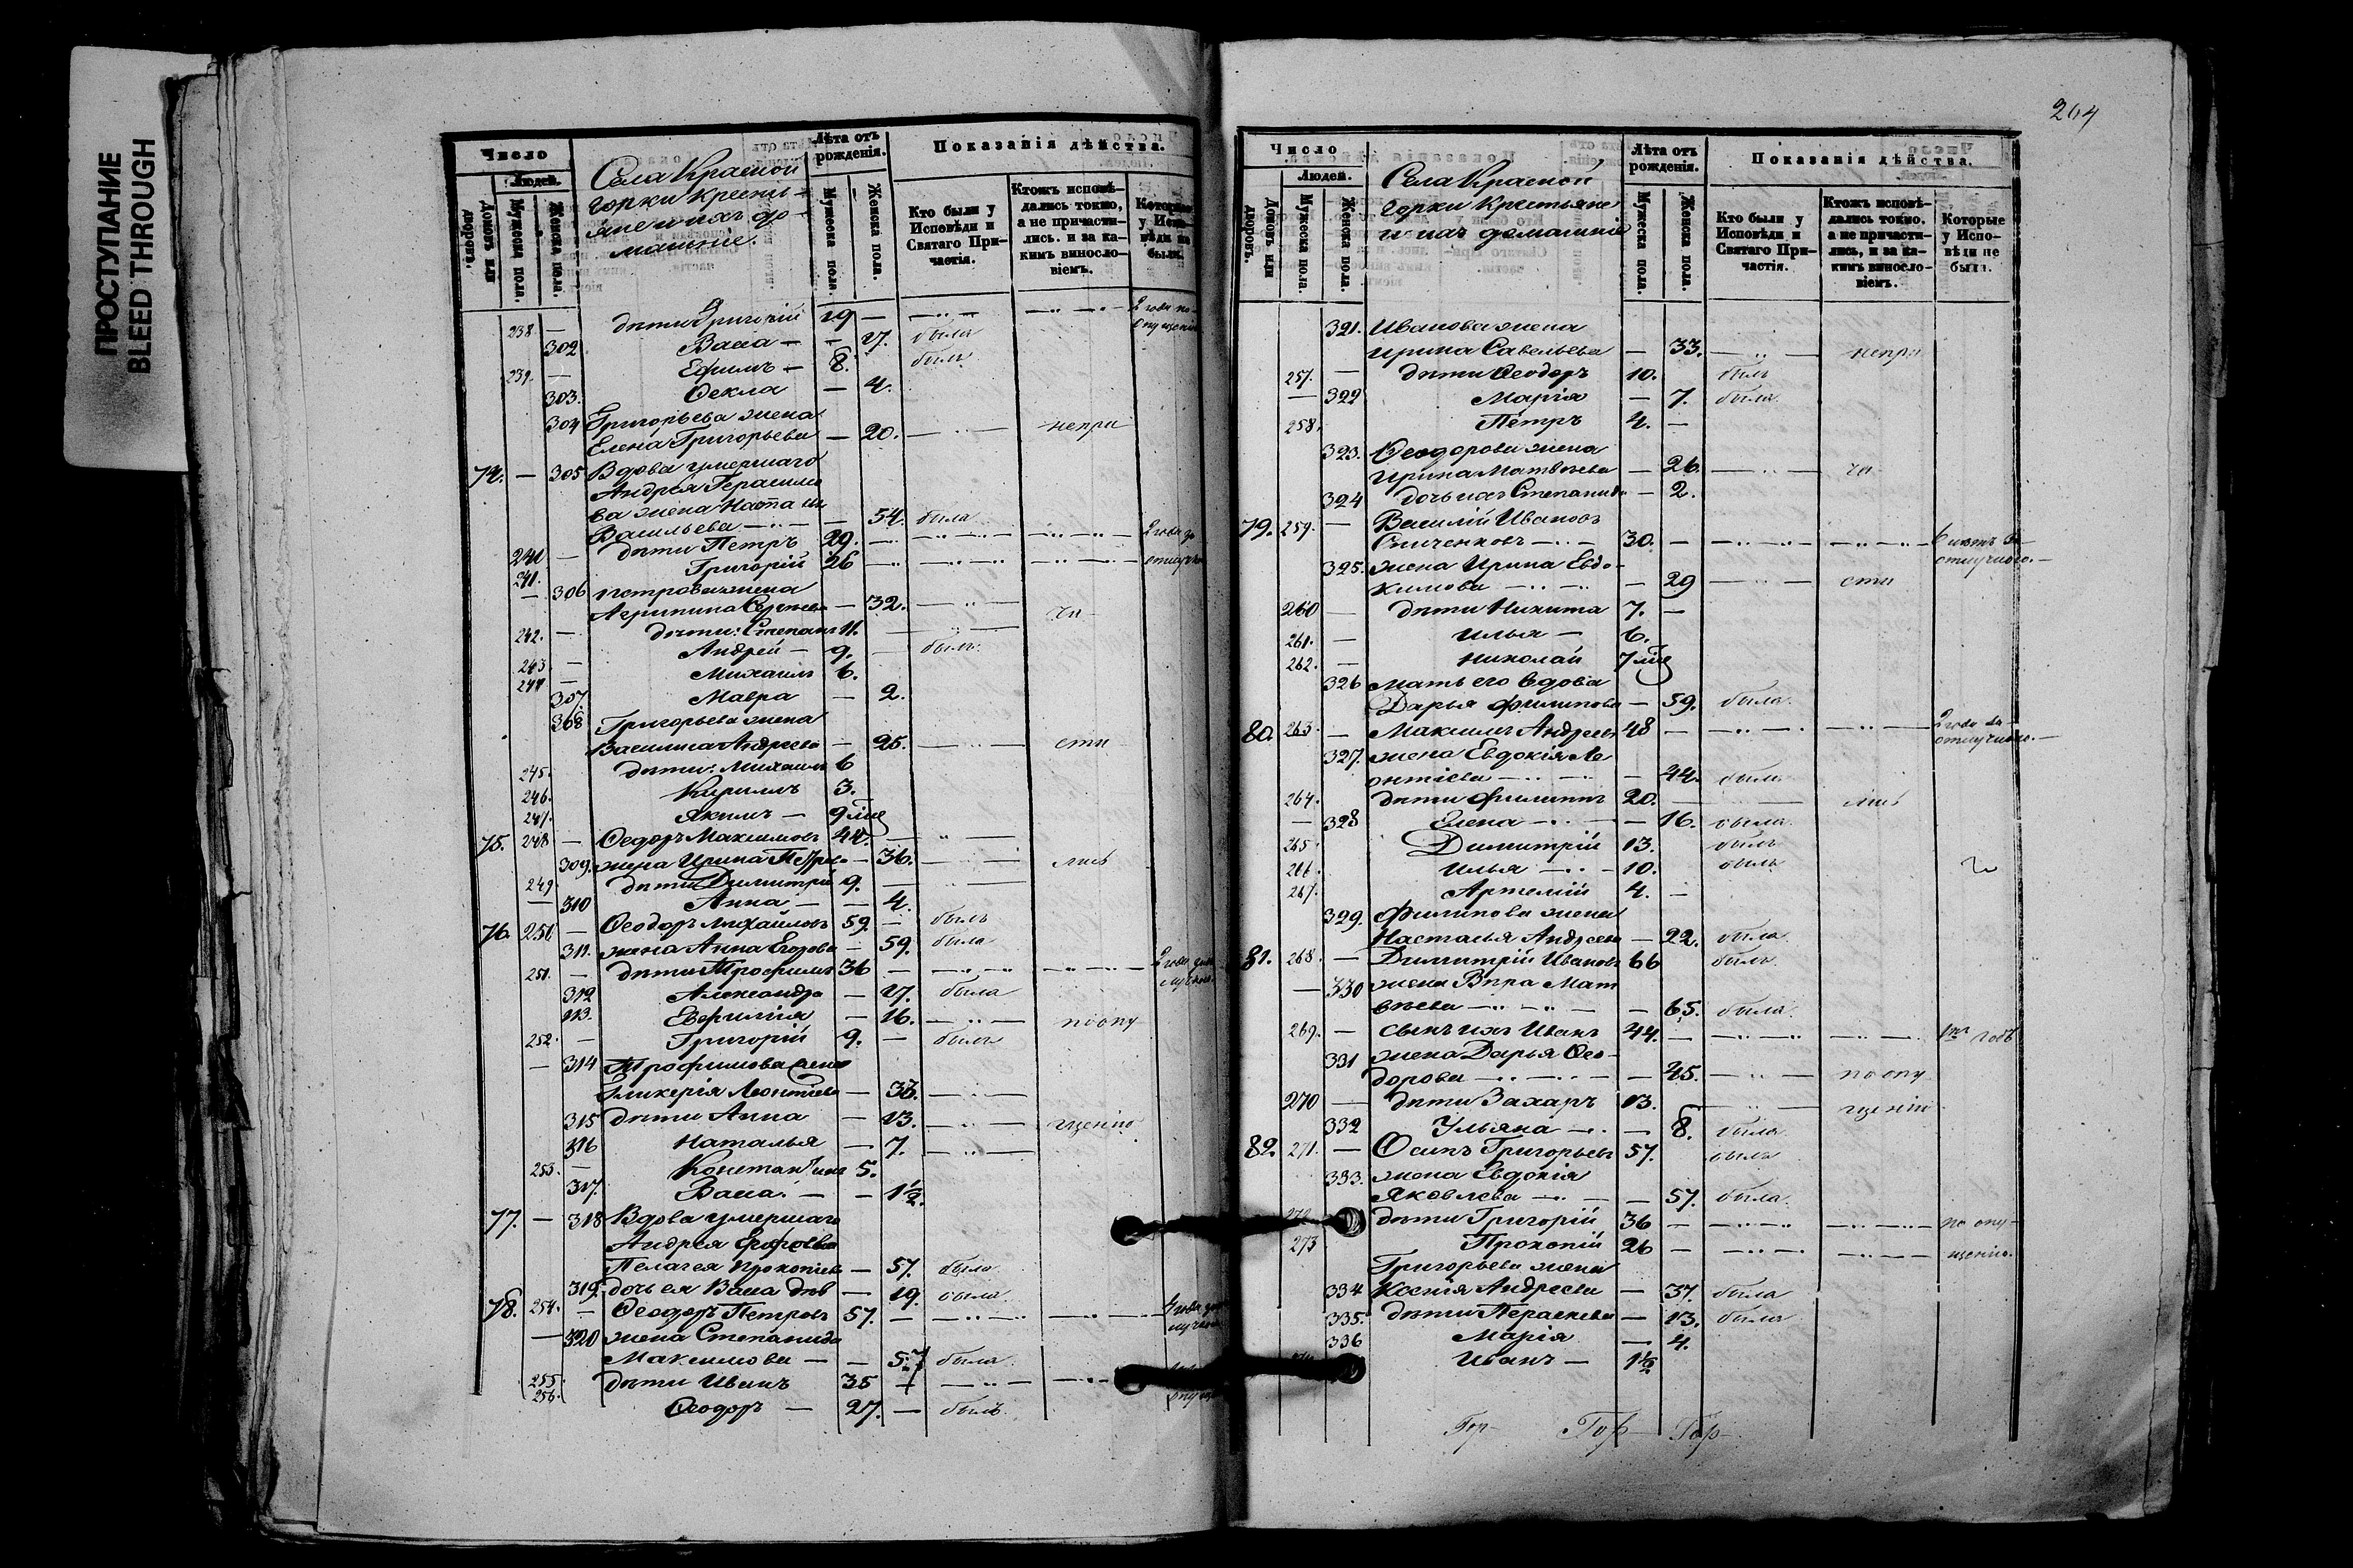 ПРОСТУПАНИЕ
BLEED THROUGH
Число
Людей.
Домовъ или дворовъ.
Мужеска пола.
Женска пола.
Села Красной
горки крестьяне и ихъ домашніе.
Лѣта отъ рожденія.
Мужеска пола.
Женска пола.
Показанія дѣйства.
Кто были у Исповѣди и Святаго Причастія.
Ктожъ исповѣдались токмо, а не причастились. и за какимъ винословіемъ.
Которые у Исповѣди не были.
238 — дѣти Григорій 19 —
302 Васса — — 17. была
239. — Ефимъ — 8. былъ
303. Ѳекла — 4.
304 Григорьева жена
Елена Григорьева — 20. непри
74. — 305 Вдова умершаго
Андрея Герасимова жена Настасья
Васильева — 54. была
240 — дѣти Петръ 29.
241. — Григорій 26
— 306 Петрова жена
Агрипина Сергѣева — 32. ча
242. — дѣти: Степанъ 11.
243. — Андрей — 9. — былъ
244 — Михаилъ 6.
307. Мавра — 2.
308 Григорьева жена
Василиса Андреева — 25. сти
245. дѣти: Михаилъ 6
246. Кирилъ 3.
247. Якимъ — 9 мце
75. 248 — Ѳедоръ Максимовъ 44.
309. жена Ирина Петрова — 36. лись
249 — дѣти Димитрій 9.
310 Анна — — 4.
76. 250 — Ѳеодоръ Михайловъ 59. — былъ
311. жена Анна Егорова — 59. была
251. — дѣти Трофимъ 36 —
312 Александра — 17. была
313. Евфимія — 16. по опу
252. — Григорій 9. — былъ
— 314 Трофимова жена
Гликерія Леонтіева — 36.
315 дѣти Анна — 13. щенію
316 Наталья — 7.
253. — Константинъ 5.
317. Васса. — — 1½.
77. — 318 Вдова умершаго
Андрея Егорова
Пелагея Прокопіева — 57. была
319. дочь ея Васса дѣв — 19. была
78. 254. — Ѳеодоръ Петровъ 57. —
— 320 жена Степанида
Максимова — — 57 была
255. дѣти Иванъ 35 —
256. Ѳеодоръ — 27. — былъ
264
Число
Людей.
Домовъ или дворовъ.
Мужеска пола.
Женска пола.
Села Красной
горки Крестьяне
и ихъ домашніе
Лѣта отъ рожденія.
Мужеска пола.
Женска пола.
Показанія дѣйства.
Кто были у Исповѣди и Святаго Причастія.
Ктожъ исповѣдались токмо. а не причастились, и за какимъ винословіемъ.
Которые у Исповѣди не были.
321. Иванова жена
Ирина Савельева — 33. непри
257. — дѣти Ѳеодоръ 10. былъ
— 322 Марія — 7. была
258. Петръ 4. —
323. Ѳеодорова жена
Ирина Матвѣева — 26. ча
324 дочь ихъ Степанида — 2.
79. 259. — Василій Ивановъ
Спиченковъ 30. —
325. жена Ирина Евдокимова — 29 сти
260 — дѣти Никита 7. —
261. — Илья — 6.
262. — Николай 7 мце
326 мать его вдова
Дарья Филипова — 59. была
80. 263. — Максимъ Андреевъ 48 —
327. жена Евдокія Леонтіева — 44. была
264. дѣти Филиппъ 20. лись
— 328 Елена — 16. была
265. Димитрій 13. былъ
266. Илья — 10. былъ
267. Артемій 4. —
329. Филипова жена
Настасья Андреева — 22. была
81. 268. — Димитрій Ивановъ 66 былъ
— 330 жена Вѣра Матвѣева — 65. была
269. — сынъ ихъ Иванъ 44. —
331 жена Дарья Ѳеодорова — 45. по опу
270 — дѣти Захаръ 13. щенію
332 Ульяна — 8. была
82. 271. — Осипъ Григорьевъ 57. былъ
333. жена Евдокія
Яковлева — 57. была
272 дѣти Григорій 36 — по опу-
273 Прокопій 26 — щенію.
Григорьева жена
334 Ксенія Андреева — 37. была
335. дѣти Параскева — 13. была
336 Марія — 4.
Иванъ — 1½